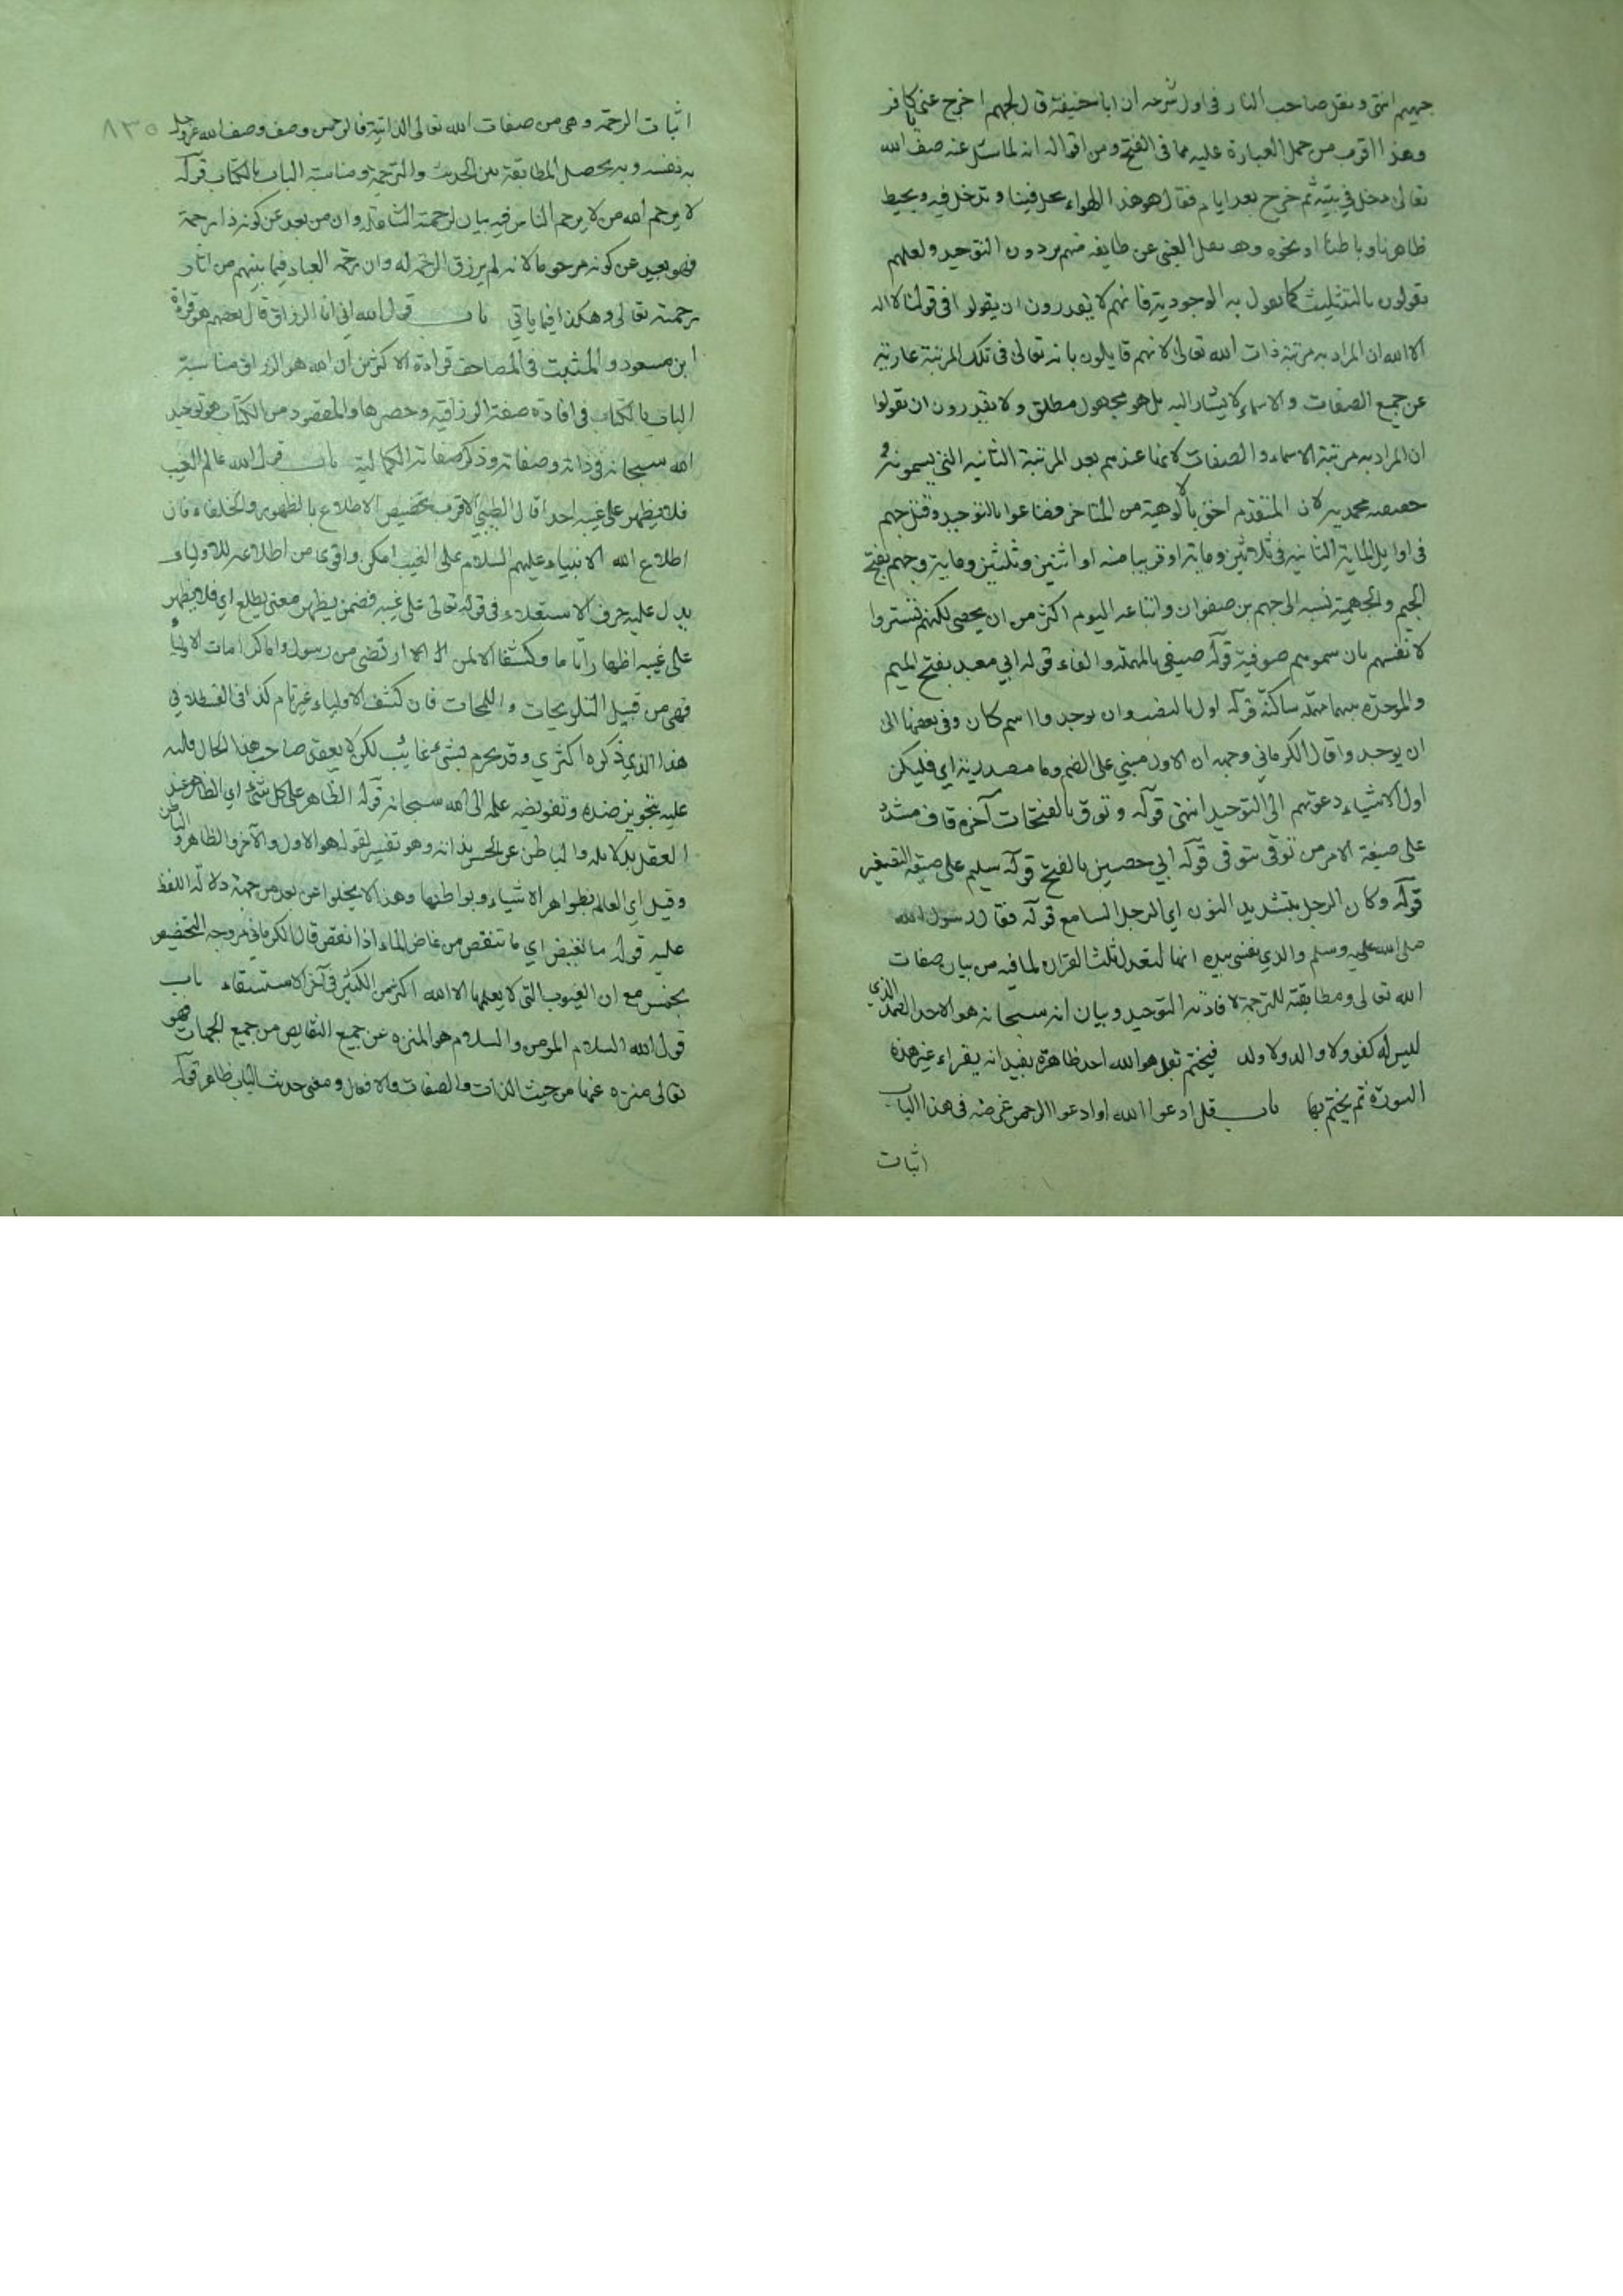 جهيم انتهى ونقل صاحب المنار في اول شرحه ان ابا حنيفة قال لجهم اخرج عني يا كافر
وهذا اقرب من حمل العبارة عليه مما في الفتح ومن اقواله انه لما سئل عنه صف الله
تعالى دخل في بيته ثم خرج بعد ايام فقال هو هذا الهواء يدخل فينا وتدخل فيه ويحيط
ظاهرنا وباطننا او نحوه وقد نقل العيني عن طايفة منهم يردون التوحيد ولعلهم
يقولون بالتثليث كما يقول به الوجودية فانهم لا يقدرون ان يقولوا في قولنا لا اله
الا الله ان المراد به مرتبة ذات الله تعالى لانهم قايلون بانه تعالى في تلك المرتبة عارية
عن جميع الصفات والاسماء لا يشار اليه بل هو مجهول مطلق ولا يقدرون ان يقولوا
ان المراد به مرتبة الاسماء والصفات لانها عندهم بعد المرتبة الثانية التي يسمونه
حقيقة محمدية لان المتقدم احق بالالوهية من المتاخر فضاعوا بالتوحيد وقتل جهم
في اوايل الماية الثانية في ثلاثين وماية او قريبا منه او اثنين وثلثين وماية وجهم بفتح
الجيم والجهمية نسبة الى جهم بن صفوان واتباعه اليوم اكثر من ان يحصى لكنهم تستروا
لانفسهم بان سموهم صوفية قوله صيفي بالمهملة والفاء قوله ابي معبد بفتح الميم
والموحدة بينهما مهملة ساكنة قوله اول بالنصب وان يوحدوا اسم كان وفي بعضها الى
ان يوحدوا قال الكرماني وجهه ان الاول مبني على الضم وما مصدرية اي فليكن
اول الاشياء دعوتهم الى التوحيد انتهى قوله وتوق بالفتحات آخره قاف مشدد
على صيغة الامر من توقى يتوقى قوله ابي حصين بالفتح قوله سليم على صيغة التصغير
قوله وكان الرجل بتشديد النون اي الرجل السامع قوله فقال رسول الله
صلى الله عليه وسلم والذي نفسي بيده انها لتعدل ثلث القران لما فيه من بيان صفات
الله تعالى ومطابقته للترجمة لافادته التوحيد وبيان انه سبحانه هو الاحد الصمد الذي
ليس له كفو ولا والد ولا ولد فيختم بقل هو الله احد ظاهره يفيد انه يقراء غير هذه
السورة ثم يختم بها باب قل ادعوا الله او ادعوا الرحمن غرضه في هذا الباب
اثبات
٨٣٥
اثبات الرحمة وهي من صفات الله تعالى الذاتية فالرحمن وصف وصف الله عز وجل
به نفسه وبه يحصل المطابقة بين الحديث والترجمة ومناسبة الباب بالكتاب قوله
لا يرحم الله من لا يرحم الناس فيه بيان لرحمته وان من بعد عن كونه ذا رحمة
فهو بعيد عن كونه مرحوما لانه لم يرزق الرحمة له وان رحمة العباد فيما بينهم من اثار
رحمته تعالى وهكذا فيما ياتي باب قول الله اني انا الرزاق قال بعضهم هو قراءة
ابن مسعود والمثبت في المصاحف قراءة الاكثرين ان الله هو الرزاق مناسبة
الباب بالكتاب في افادة صفة الرزاقية وحصرها والمقصود من الكتاب هو توحيد
الله سبحانه في ذاته وصفاته وذكر صفاته الكمالية باب قول الله عالم الغيب
فلا يظهر على غيبه احدا قال الطيبي الاقرب تخصيص الاطلاع بالظهور والخلفاء فان
اطلاع الله الانبياء عليهم السلام على الغيب امكن واقوى من اطلاعه للاولياء
يدل عليه حرف الاستعلاء في قوله تعالى على غيبه فضمن يظهر معنى يطلع اي فلا يظهر
على غيبه اظهارا تاما وكشفا الا لمن ارتضى من رسول واما كرامات الاولياء
فهي من قبيل التلويحات واللمحات فان كشف الاولياء غير تام كذا في القسطلاني
هذا الذي ذكره اكثري وقد يجزم بشيء غايب لكن لا يعقد صاحب هذا الحال قلبه
عليه بتجويز ضده وتفويض علمه الى الله سبحانه قوله الظاهر على كل شيء اي الظاهر عند
العقل بدلايله والباطن عن الحس بذاته وهو تفسير لقوله هو الاول والآخر والظاهر والباطن
وقيل اي العالم بظواهر الاشياء وبواطنها وهذا لا يخلوا عن بعد من جهة دلالة اللفظ
عليه قوله ما تغيض اي ما تنقص من غاض الماء اذا نقص قال الكرماني مر وجه التخصيص
بخمس مع ان الغيوب التي لا يعلمها الا الله اكثر من الكثير في آخر الاستسقاء باب
قول الله السلام المومن والسلام هو المنزه عن جميع النقايص من جميع الجهات فهو
تعالى منزه عنها من حيث الذات والصفات والافعال ومعنى حديث الباب ظاهر قوله